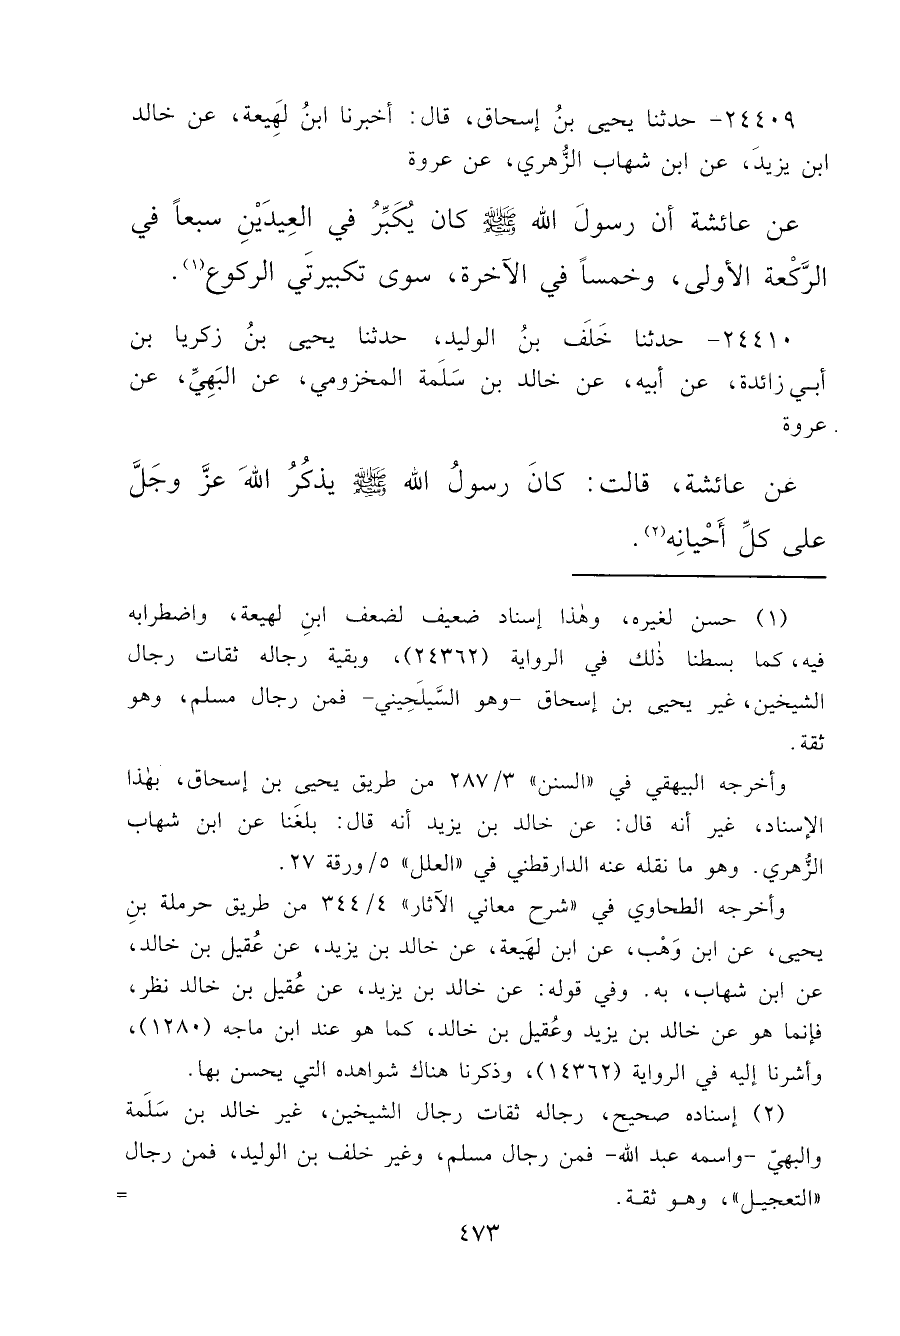 ٢٤٤٠٩- حدثنا يحيى بنُ إسحاق، قال: أخبرنا ابنُ لهَيعة، عن خالد
ابن يزيدَ، عن ابن شهاب الزُّهري، عن عروة
عن عائشة أن رسولَ الله ﷺ كان يُكَبِّرُ في العِيدَيْنِ سبعاً في
الرَّكْعة الأولى، وخمساً في الآخرة، سوى تكبيرتَي الركوع(١).
٢٤٤١٠- حدثنا خَلَف بنُ الوليد، حدثنا يحيى بنُ زكريا بن
أبي زائدة، عن أبيه، عن خالد بن سَلَمة المخزومي، عن البَهِيِّ، عن
عروة
عن عائشة، قالت: كانَ رسولُ الله ﷺ يذكُرُ اللهَ عزَّ وجَلَّ
على كلِّ أَحْيانِه(٢).
(١) حسن لغيره، وهٰذا إسناد ضعيف لضعف ابنِ لهيعة، واضطرابه
فيه، كما بسطنا ذٰلك في الرواية (٢٤٣٦٢)، وبقية رجاله ثقات رجال
الشيخين، غير يحيى بن إسحاق -وهو السَّيلَحِيني- فمن رجال مسلم، وهو
ثقة.
وأخرجه البيهقي في «السنن» ٢٨٧/٣ من طريق يحيى بن إسحاق، بهٰذا
الإسناد، غير أنه قال: عن خالد بن يزيد أنه قال: بلغَنا عن ابن شهاب
الزُّهري. وهو ما نقله عنه الدارقطني في «العلل» ٥/ورقة ٢٧.
وأخرجه الطحاوي في «شرح معاني الآثار» ٣٤٤/٤ من طريق حرملة بنِ
يحيى، عن ابن وَهْب، عن ابن لهَيعة، عن خالد بن يزيد، عن عُقيل بن خالد،
عن ابن شهاب، به. وفي قوله: عن خالد بن يزيد، عن عُقيل بن خالد نظر،
فإنما هو عن خالد بن يزيد وعُقيل بن خالد، كما هو عند ابن ماجه (١٢٨٠)،
وأشرنا إليه في الرواية (١٤٣٦٢)، وذكرنا هناك شواهده التي يحسن بها.
(٢) إسناده صحيح، رجاله ثقات رجال الشيخين، غير خالد بن سَلَمة
والبهيّ -واسمه عبد الله- فمن رجال مسلم، وغير خلف بن الوليد، فمن رجال
«التعجيل»، وهو ثقة. =
٤٧٣